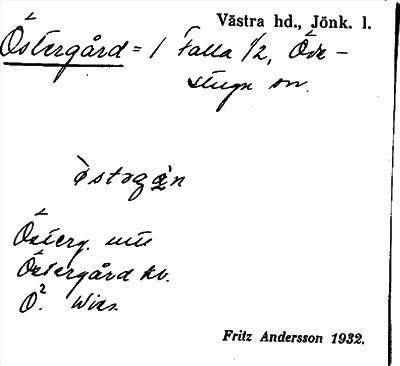 Västra hd., Jönk. l.
Östergård = 1 Falla 1/2, Öde-
stugu sn.
östəgɑ̀n
Österg. uttt
Östergård kv.
Ö.² Wies.
Fritz Andersson 1932.